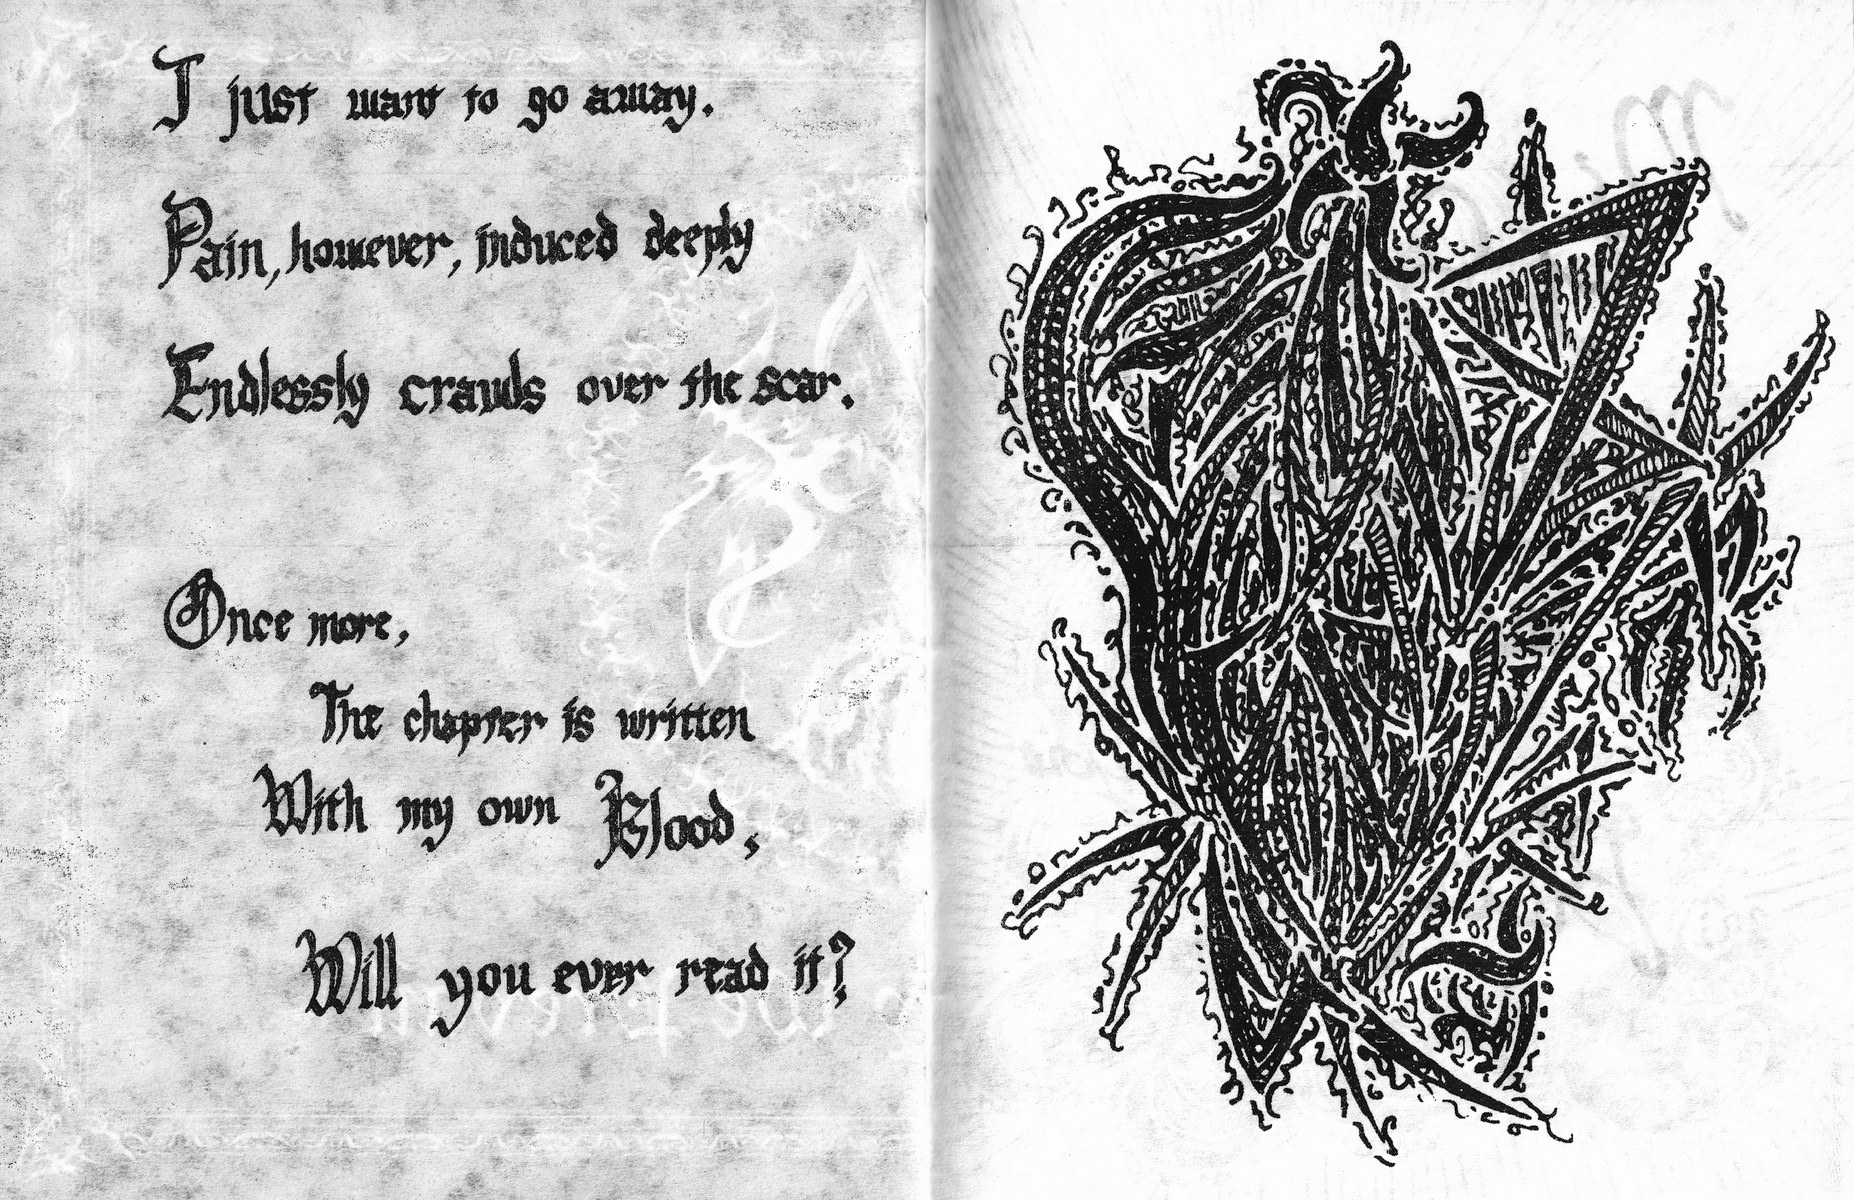 I just want to go away.
Pain, however, induced deeply
Endlessly crawls over the scar.
Once more,
The chapter is written
With my own Blood,
Will you ever read it?